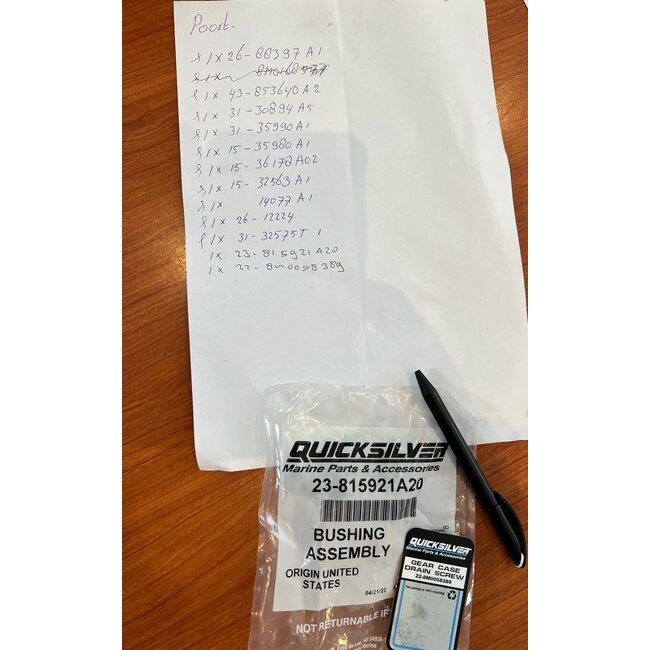 Poort.
1x 26-88397 A1
1x
1x 43-853640 A2
1x 31-30894 A5
1x 31-35990 A1
1x 15-35980 A1
1x 15-36178 A02
1x 15-32563 A1
1x 14077 A1
1x 26-12224
1x 31-32575T 1
1x 23-815921A20
1x 22-8M0058389
QUICKSILVER
Marine Parts & Accessories
23-815921A20
BUSHING
ASSEMBLY
ORIGIN UNITED
STATES
04/21/22
NOT RETURNABLE IF
QUICKSILVER
Marine Parts & Accessories
GEAR CASE
DRAIN SCREW
22-8M0058389